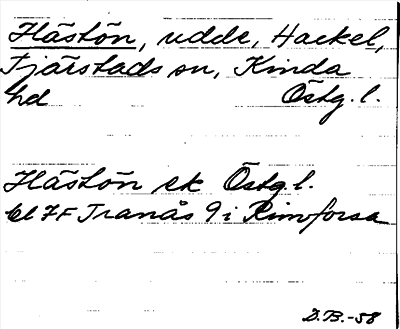 Hästön, udde, Hackel,
Tjärstads sn, Kinda
hd Östg. l.
Hästön ek Östg. l.
bl 7F Tranås 9 i Rimforsa
D.B.-58